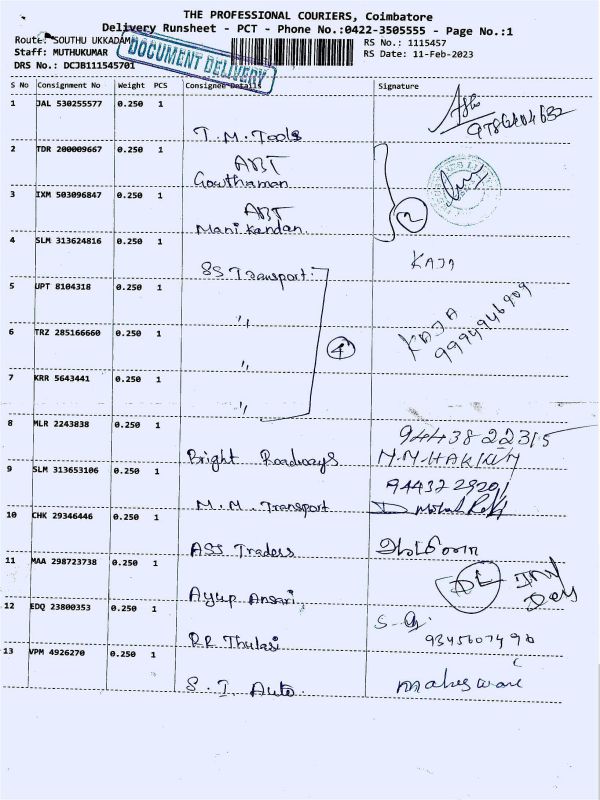 THE PROFESSIONAL COURIERS, Coimbatore
Delivery Runsheet - PCT - Phone No.:0422-3505555 - Page No.:1
Route: SOUTHU UKKADAM
RS No.: 1115457
Staff: MUTHUKUMAR
RS Date: 11-Feb-2023
DRS No.: DCJB111545701
DOCUMENT DELIVERY
S No Consignment No Weight PCS Consignee Details Signature
1 JAL 530255577 0.250 1
T.M. Tools
9786404632
2 TDR 200009667 0.250 1
ABT
Gowthaman
3 IXM 503096847 0.250 1
ABT
Manikandan
2
4 SLM 313624816 0.250 1
SS Transport
KAJA
5 UPT 8104318 0.250 1
〃
KAJA
9994946909
6 TRZ 285166660 0.250 1
〃
4
7 KRR 5643441 0.250 1
〃
8 MLR 2243838 0.250 1
Bright Roadways
9443822315
M.M HAKKIM
9 SLM 313653106 0.250 1
M.M. Transport
10 CHK 29346446 0.250 1
ASS Traders
11 MAA 298723738 0.250 1
Ayup Ansari
DL
12 EDQ 23800353 0.250 1
RR Thulasi
9345607496
13 VPM 4926270 0.250 1
S.I Auto